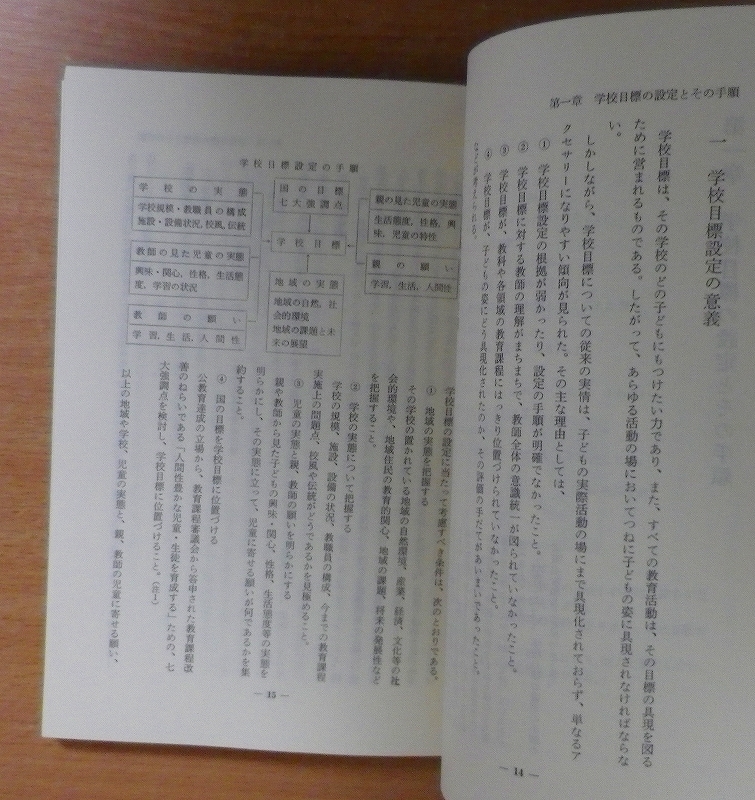 第一章　学校目標の設定とその手順
一　学校目標設定の意義
学校目標は、その学校のどの子どもにもつけたい力であり、また、すべての教育活動は、その目標の具現を図る
ために営まれるものである。したがって、あらゆる活動の場においてつねに子どもの姿に具現されなければならな
い。
しかしながら、学校目標についての従来の実情は、子どもの実際活動の場にまで具現化されておらず、単なるア
クセサリーになりやすい傾向が見られた。その主な理由としては、
① 学校目標設定の根拠が弱かったり、設定の手順が明確でなかったこと。
② 学校目標に対する教師の理解がまちまちで、教師全体の意識統一が図られていなかったこと。
③ 学校目標が、教科や各領域の教育課程にはっきり位置づけられていなかったこと。
④ 学校目標が、子どもの姿にどう具現化されたのか、その評価の手だてがあいまいであったこと。
などが考えられる。
— 14 —
学校目標設定の手順
学校の実態
学校規模・教職員の構成
施設・設備状況、校風、伝統
教師の見た児童の実態
興味・関心、性格、生活態
度、学習の状況
教師の願い
学習、生活、人間性
国の目標
七大強調点
学校目標
地域の実態
地域の自然、社
会的環境
地域の課題と未
来の展望
親の見た児童の実態
生活態度、性格、興
味、児童の特性
親の願い
学習、生活、人間性
学校目標の設定に当たって考慮すべき条件は、次のとおりである。
① 地域の実態を把握する
その学校の置かれている地域の自然環境、産業、経済、文化等の社
会的環境や、地域住民の教育的関心、地域の課題、将来の発展性など
を把握すること。
② 学校の実態について把握する
学校の規模、施設、設備の状況、教職員の構成、今までの教育課程
実施上の問題点、校風や伝統がどうであるかを見極めること。
③ 児童の実態と親、教師の願いを明らかにする
親や教師から見た子どもの興味・関心、性格、生活態度等の実態を
明らかにし、その実態に立って、児童に寄せる願いが何であるかを集
約すること。
④ 国の目標を学校目標に位置づける
公教育達成の立場から、教育課程審議会から答申された教育課程改
善のねらいである「人間性豊かな児童・生徒を育成する」ための、七
大強調点を検討し、学校目標に位置づけること。（注1）
以上の地域や学校、児童の実態と、親、教師の児童に寄せる願い、
— 15 —